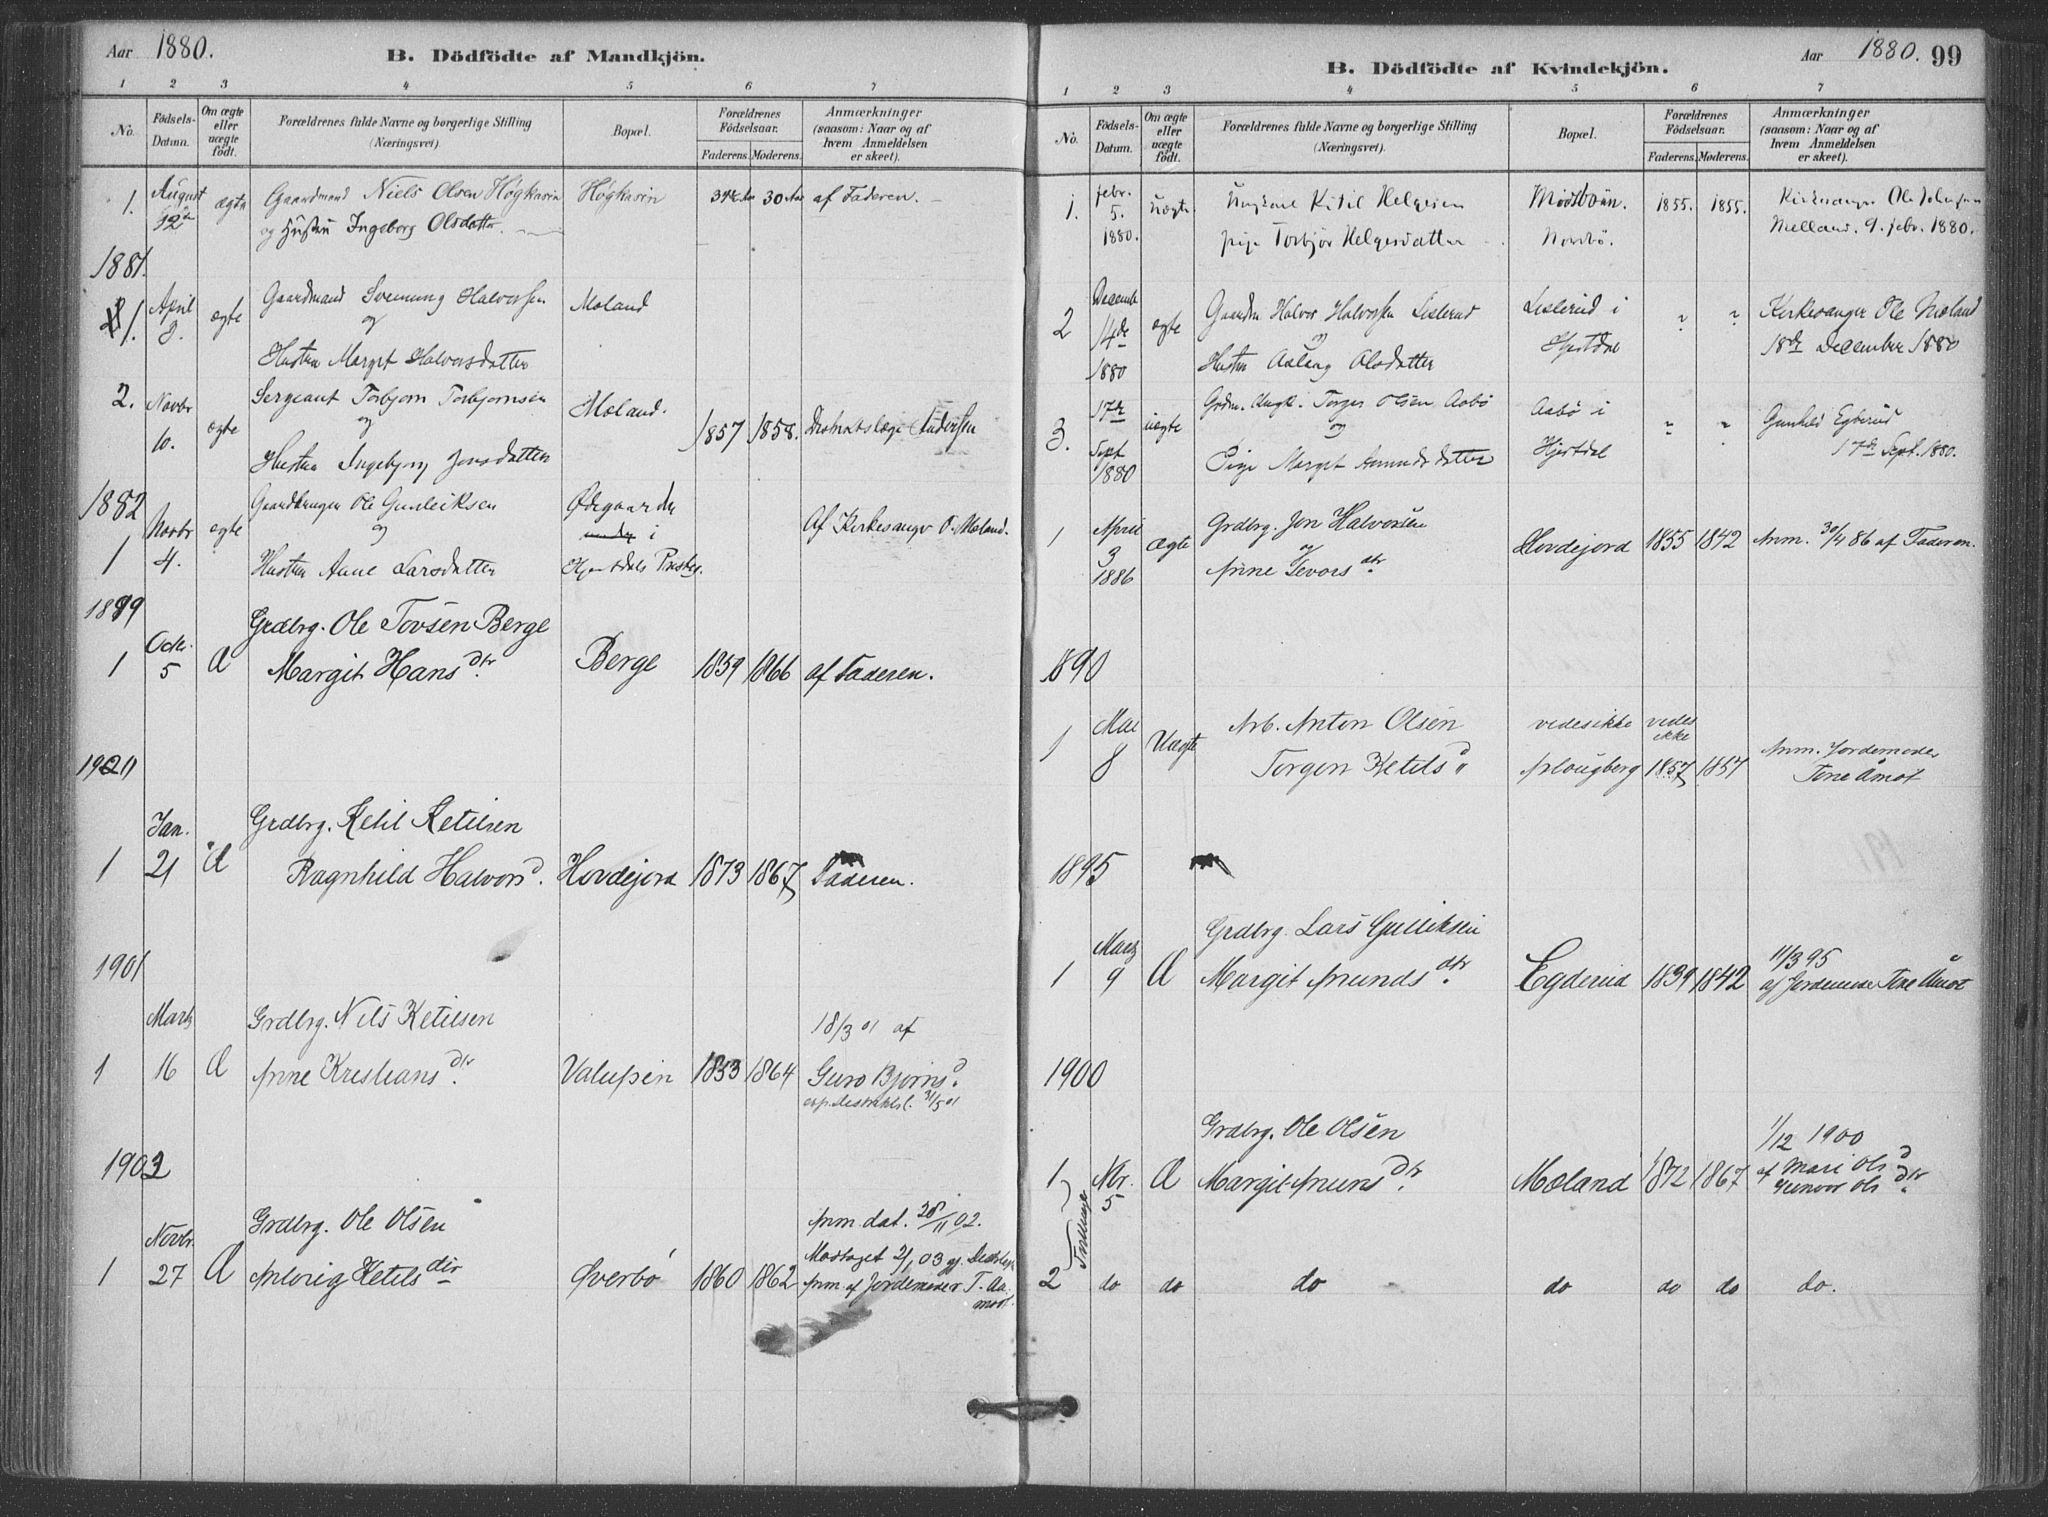 Aar 1880.
B. Dödfödte af Mandkjön.
1 2 3 4 5 6 7
No. Födsels-Datum. Om ægte eller uægte födt. Forældrenes fulde Navne og borgerlige Stilling (Næringsvei). Bopæl. Forældrenes Födselsaar. Faderens. Moderens. Anmærkninger (saasom: Naar og af hvem Anmeldelsen er skeet).
1. August 12te ægte Gaardmand Niels Olsen Høgkasin Høgkasin 30 Aar af Faderen.
og Hustru Ingeborg Olsdatter
1881.
1. April 8. ægte Gaardmand Svenung Halvorsen Moland
og
Hustru Margit Halvorsdatter
2. Novbr 10. ægte Sergeant Torbjørn Torbjørnsen Moland. 1857 1858. Distriktslæge Andersen
og
Hustru Ingebjørg Jonsdatter
1882
1 Novbr 4. ægte Gaardbruger Ole Gunleiksen Ødegaarden
og i Af Kirkesanger O. Moland.
Hustru Anne Larsdatter Hjertdals Præstg.
1889
1 Octr. 5 Æ Grdbrg. Ole Tovsen Berge
Margit Hans dtr. Berge 1859 1866 af Faderen.
1 Jan. 21 Æ Grdbrg. Ketil Ketilsen
Ragnhild Halvors d. Hovdejord 1873 1867 Faderen.
1901
1 Marts 16 Æ Grdbrg. Nils Ketilsen 18/3 01 af
Anne Kristians dtr. 1853 1864 Guro Bjørns d.
31/5 01
1 Novbr. 27 Æ Grdbrg. Ole Olsen Anm. dat. 28/11 02.
Aslaug Ketils dtr Øverbø 1860 1862 Modtaget 2/1 03
Anm af Jordemoder T. Aamodt.
Aar 1880. 99
B. Dödfödte af Kvindekjön.
1 2 3 4 5 6 7
No. Födsels-Datum. Om ægte eller uægte födt. Forældrenes fulde Navne og borgerlige Stilling (Næringsvei). Bopæl. Forældrenes Födselsaar. Faderens. Moderens. Anmærkninger (saasom: Naar og af hvem Anmeldelsen er skeet).
1. febr. 5. 1880. uægte Ungkarl Kitil Helgesen 1855. 1855. Kirkesanger Ole Johnsen
pige Torbjør Helgesdatter Nordbø. Melland. 9. febr. 1880.
2 Decemb 14de 1880 ægte Gaardm Halvor Halvorsen Lislerud Lislerud i " " Kirkesanger Ole Moland
og Hjertdal 18de December 1880
Hustru Aslaug Olsdatter
3. 17de Sept 1880 uægte Grdm. Ungk. Torger Olsen Aabø Aabø i " " Gunhild Egderud
og
Pige Margit Amundsdatter Hjertdal 17de Sept. 1880.
1 April 3 1886 Ægte Grdbrg. Jon Halvorsen
og Hovdejord 1855 1842 Anm. 30/4 86 af Faderen.
Anne Tevors dtr.
1890
1 Mai 8 Uægte Arb. Anton Olsen vides ikke vides ikke
Torgon Ketils d Plougberg 1857 1857 Anm. Jordemoder
Tone Åmot
1895
1 Marts 9 Æ Grdbrg. Lars Gulliksen
Margit Amunds dtr. Egderud 1839 1842 11/3 95
af Jordemoder Tone Åmot
1900
1 Nbr. 5 Æ Grdbrg. Ole Olsen 1/12 1900
Margit Amuns dtr. Moland 1872 1867 af Mari Ols d
Gunvor Ols dtr.
Tvillinge
2 do do do do do do do.